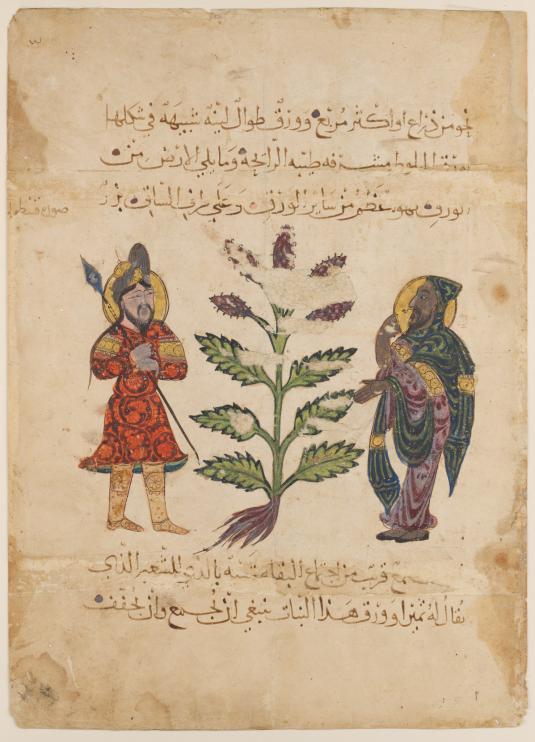 نحو من ذراع او اكثر مربع وورق طوال لينه شبيهه في شكلها
بورق البلوط مشرفه طيبه الرائحة وما يلي الارض من
الورق يهو عظم من ساير الورق وعلى طرف الساق بزر
صورة
قريب من اجماع البقا بالذي للشعير الذي
يقال له ثمينرا وورق هذا النبات ينبغي ان يجمع وان يجفف